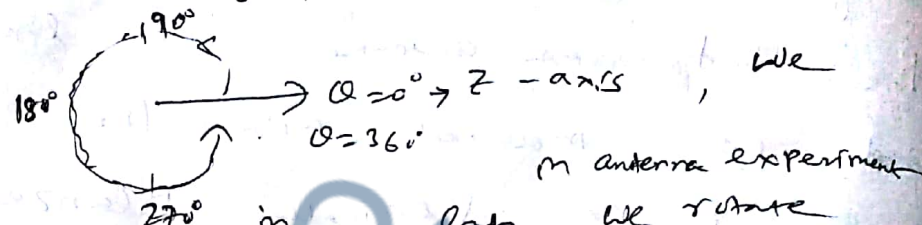 90°
180°
θ=0° → Z - axis , we
θ=360°
in antenna experiment
270° in we rotate